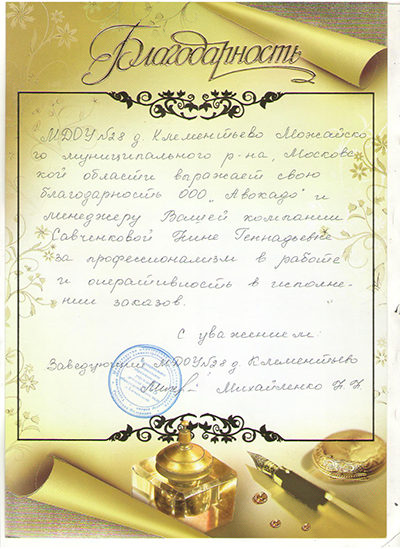 Благодарность
МДОУ №28 д. Клементьево Можайско
го муниципального р-на, Московс
кой области впражает свою
благодарность ООО „Авокадо" и
менеджеру Вашей компании
Савченковой Нине Геннадьевне
за профессионализм в работе
и оперативность в исполне-
нии заказов.
С уважением:
Заведующий МДОУ №28 д. Клементьево
Михайленко Н. Н.